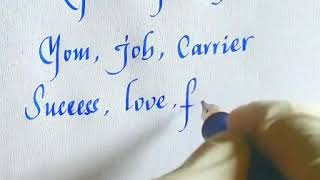 Yom, Job, Carrier
Success, love, f